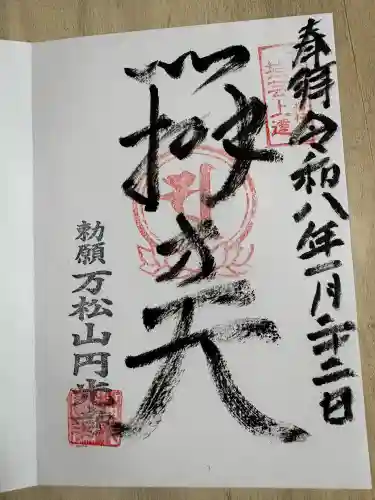 奉拝
令和八年一月二十二日
弁才天
勅願 万松山円光寺